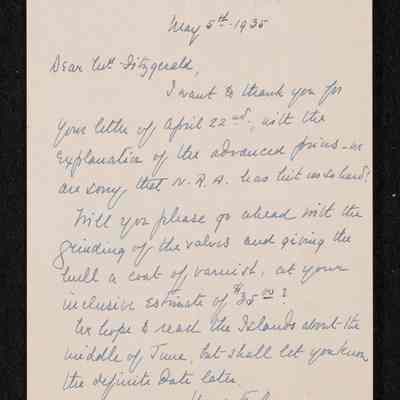 May 5th - 1935
Dear Mr. Fitzgerald,
I want to thank you for
your letter of April 22nd, with the
explanation of the advanced prices - we
are sorry that N.R.A. has hit us so hard!
Will you please go ahead with the
grinding of the valves and giving the
hull a coat of varnish, at your
inclusive estimate of $35.00?
We hope to reach the Islands about the
middle of June, but shall let you know
the definite date later.